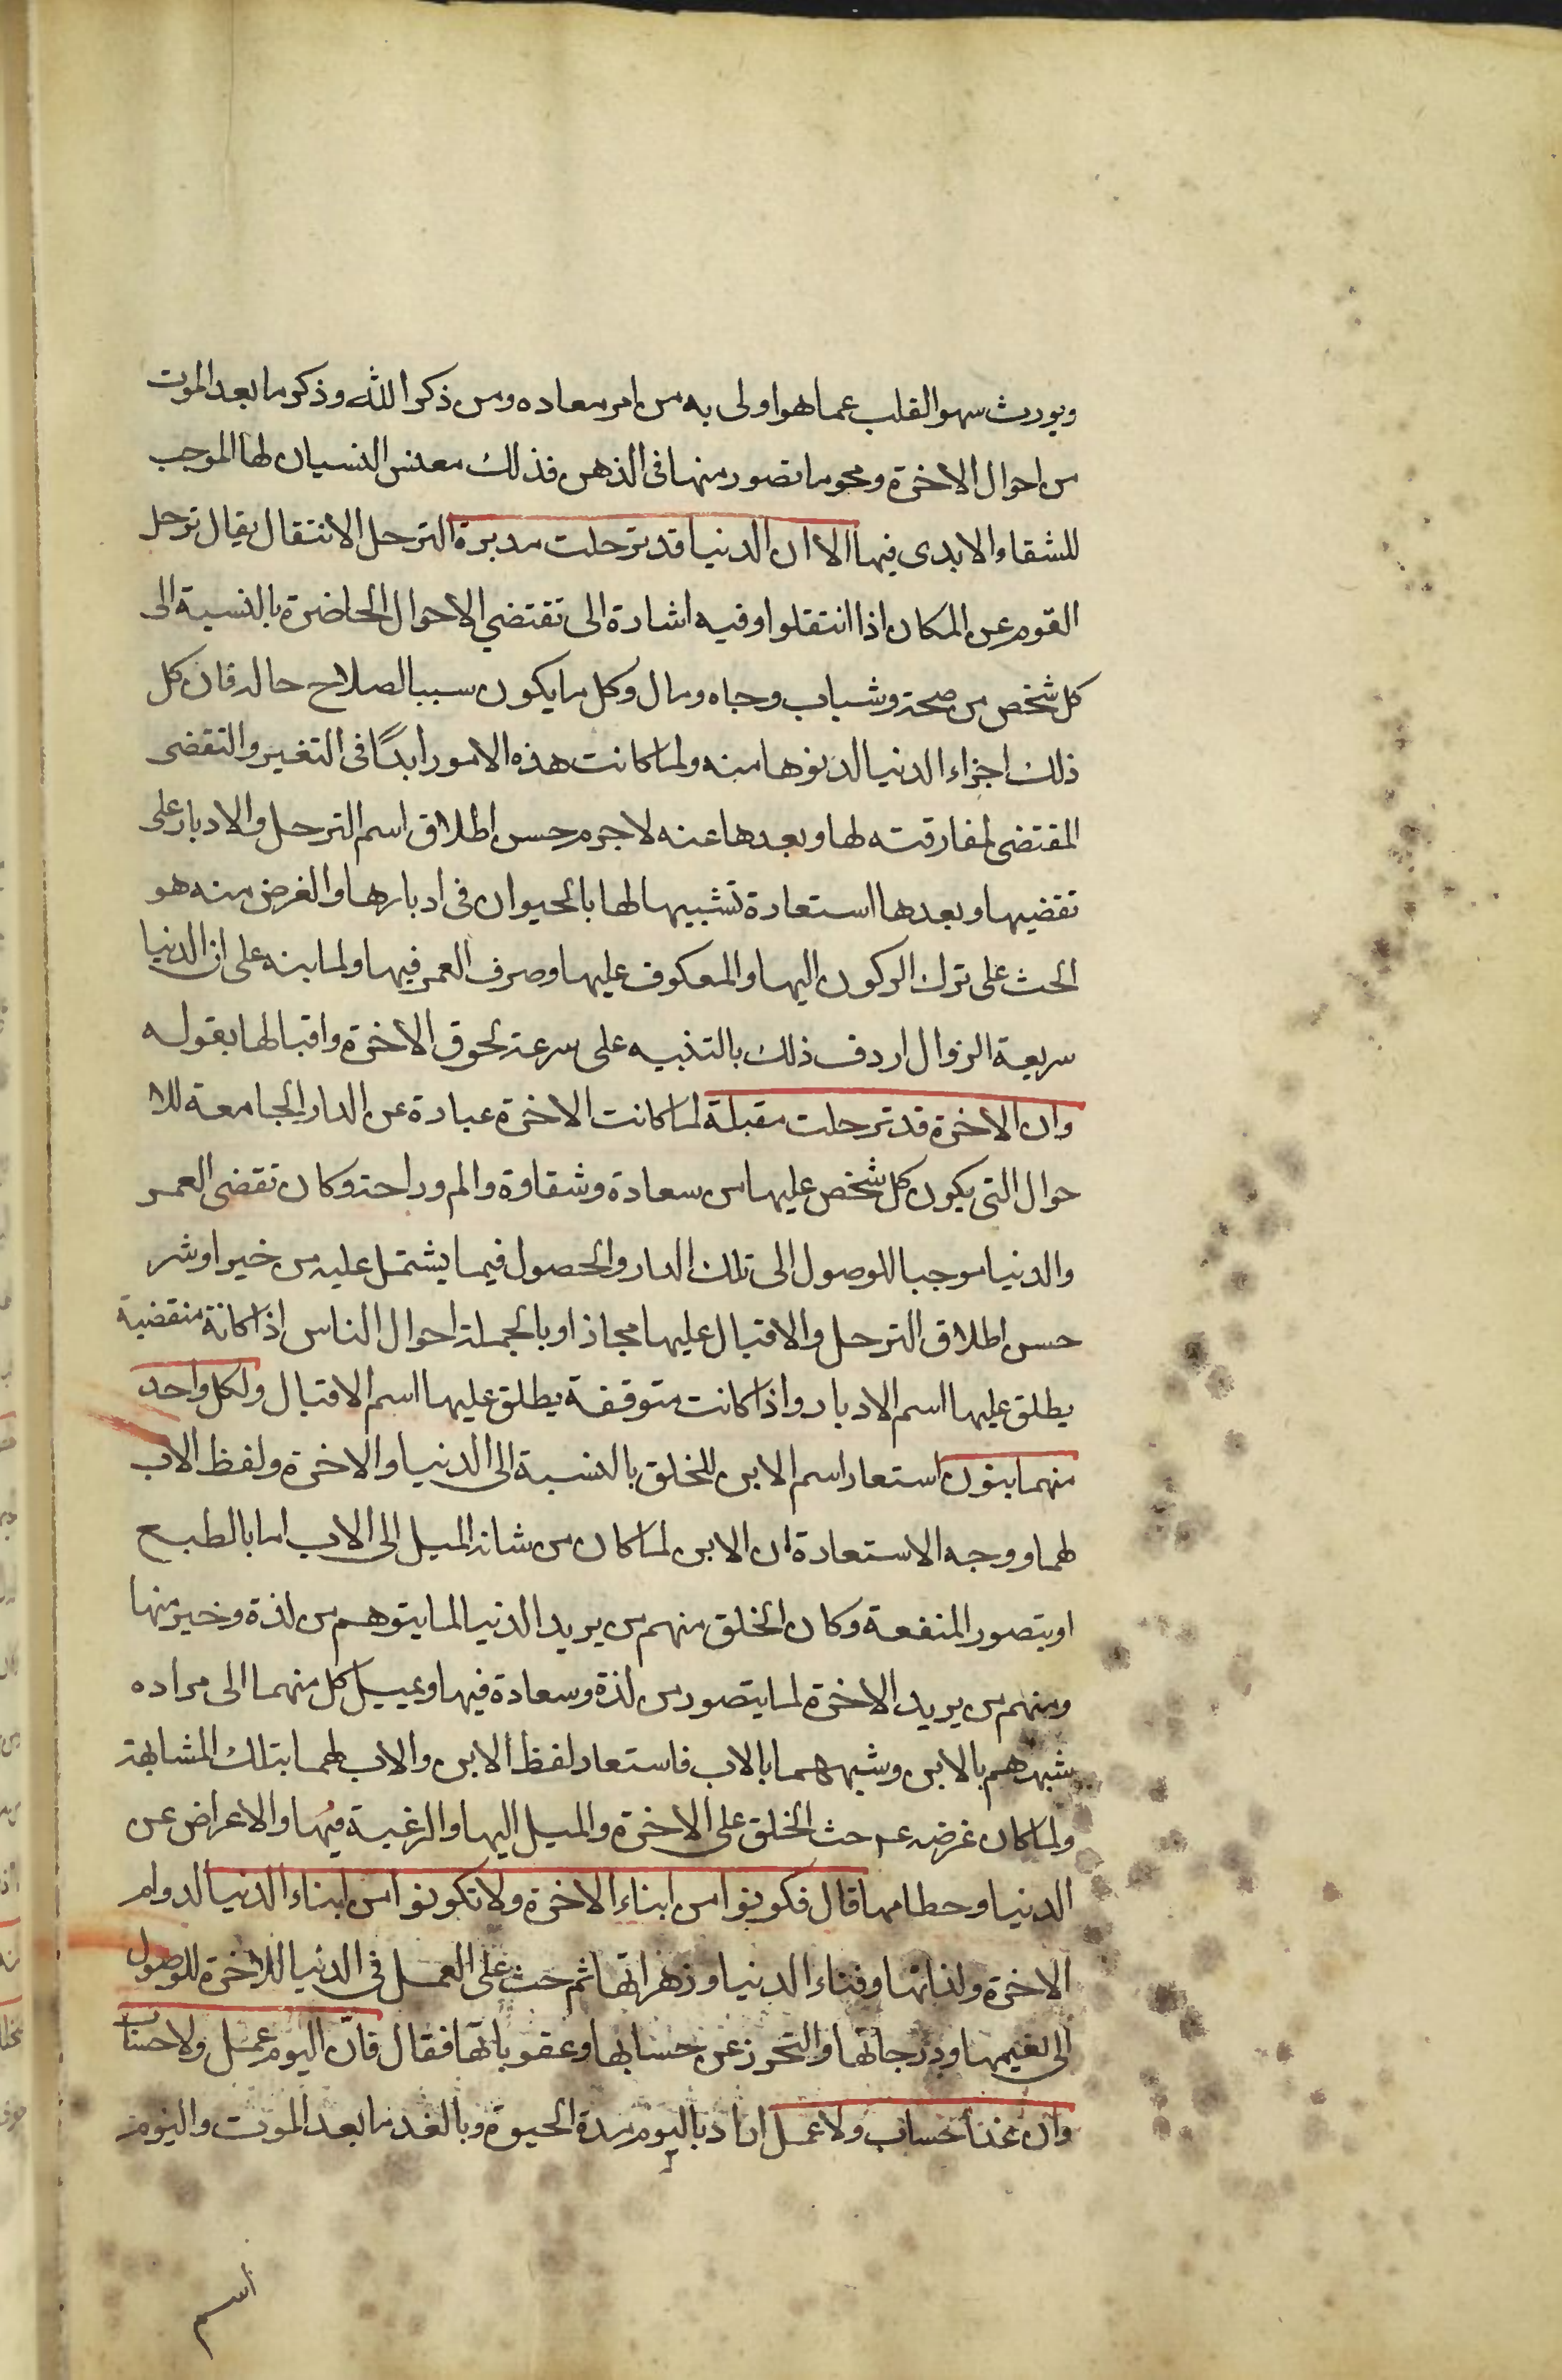 ويورث سهو القلب عما هو اولى به من امر معاده ومن ذكر الله وذكر ما بعد الموت
من احوال الاخرة ومحو ما تصور منها فى الذهن فذلك معنى النسيان لها الموجب
للشقاء الابدى فيها الا ان الدنيا قد ترحلت مدبرة الترحل الانتقال يقال ترحل
القوم عن المكان اذا انتقلوا وفيه اشارة الى تقتضي الاحوال الحاضرة بالنسبة الى
كل شخص من صحة وشباب وجاه ومال وكل ما يكون سببا لصلاح حاله فان كل
ذلك اجزاء الدنيا لدنوها منه ولما كانت هذه الامور ابدًا فى التغير والتقضى
المقتضى لمفارقته لها وبعدها عنه لا جرم حسن اطلاق اسم الترحل والادبار على
تقضيها وبعدها استعارة تشبيها لها بالحيوان فى ادبارها والغرض منه هو
الحث على ترك الركون اليها والمعكوف عليها وصرف العمر فيها ولما بنه على ان الدنيا
سريعة الزوال اردف ذلك بالتنبيه على سرعة لحوق الاخرة واقبالها بقوله
وان الاخرة قد ترحلت مقبلة لما كانت الاخرة عبارة عن الدار الجامعة للا
حوال التى يكون كل شخص عليها من سعادة وشقاوة والم وراحة وكان تقضى العمر
والدنيا موجبا للوصول الى تلك الدار والحصول فيما يشتمل عليه من خير او شر
حسن اطلاق الترحل والاقبال عليها مجاذا وبالجملة احوال الناس اذا كانة منقضية
يطلق عليها اسم الادبار واذا كانت متوقفة يطلق عليها اسم الاقبال ولكل واحد
منهما بنون استعار اسم الابن للخلق بالنسبة الى الدنيا والاخرة ولفظ الاب
لهما ووجه الاستعارة ان الابن لما كان من شانه الميل الى الاب اما بالطبع
او بتصور المنفعة وكان الخلق منهم من يريد الدنيا لما يتوهم من لذة وخير منها
ومنهم من يريد الاخرة لما يتصور من لذة وسعادة فيها ويميل كل منهما الى مراده
شبههم بالابن وشبههما بالاب فاستعار لفظ الابن والاب لهما بتلك المشابهة
ولما كان غرضه عم حث الخلق على الاخرة والميل اليها والرغبة فيها والاعراض عن
الدنيا وحطامها قال فكونوا من ابناء الاخرة ولا تكونوا من ابناء الدنيا لدوام
الاخرة ولذاتها وفناء الدنيا وزهراتها ثم حث على العمل فى الدنيا للاخرة للوصول
الى نعيمها ودرجاتها والتحرز عن حسابها وعقوباتها فقال فانّ اليوم عمل ولا حساب
وان غدا حساب ولا عمل اراد باليوم مدة الحيوة وبالغد ما بعد الموت واليوم
اسم